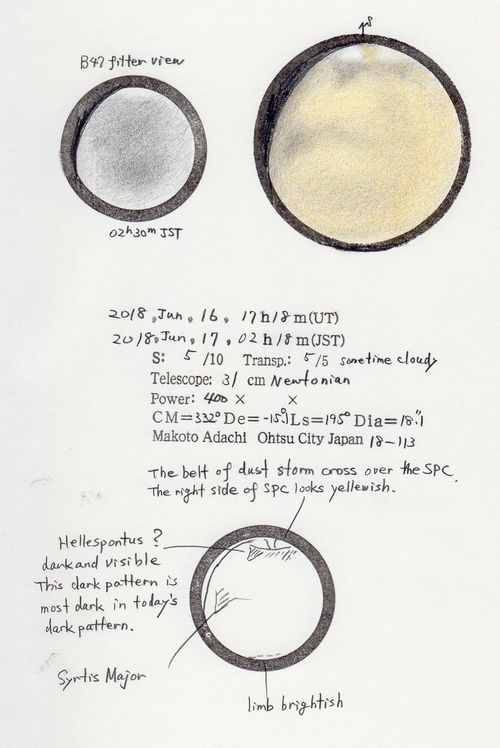 B47 filter view
02h30m JST
2018, Jun, 16, 17h18m(UT)
2018, Jun, 17, 02h18m(JST)
S: 5 /10 Transp.: 5/5 sometime cloudy
Telescope: 31 cm Newtonian
Power: 400 × ×
CM=332° De=-15° Ls=195° Dia=18".1
Makoto Adachi Ohtsu City Japan 18-113
The belt of dust storm cross over the SPC.
The right side of SPC looks yellewish.
Hellespontus ?
dark and visible
This dark pattern is
most dark in today's
dark pattern.
Syrtis Major
limb brightish